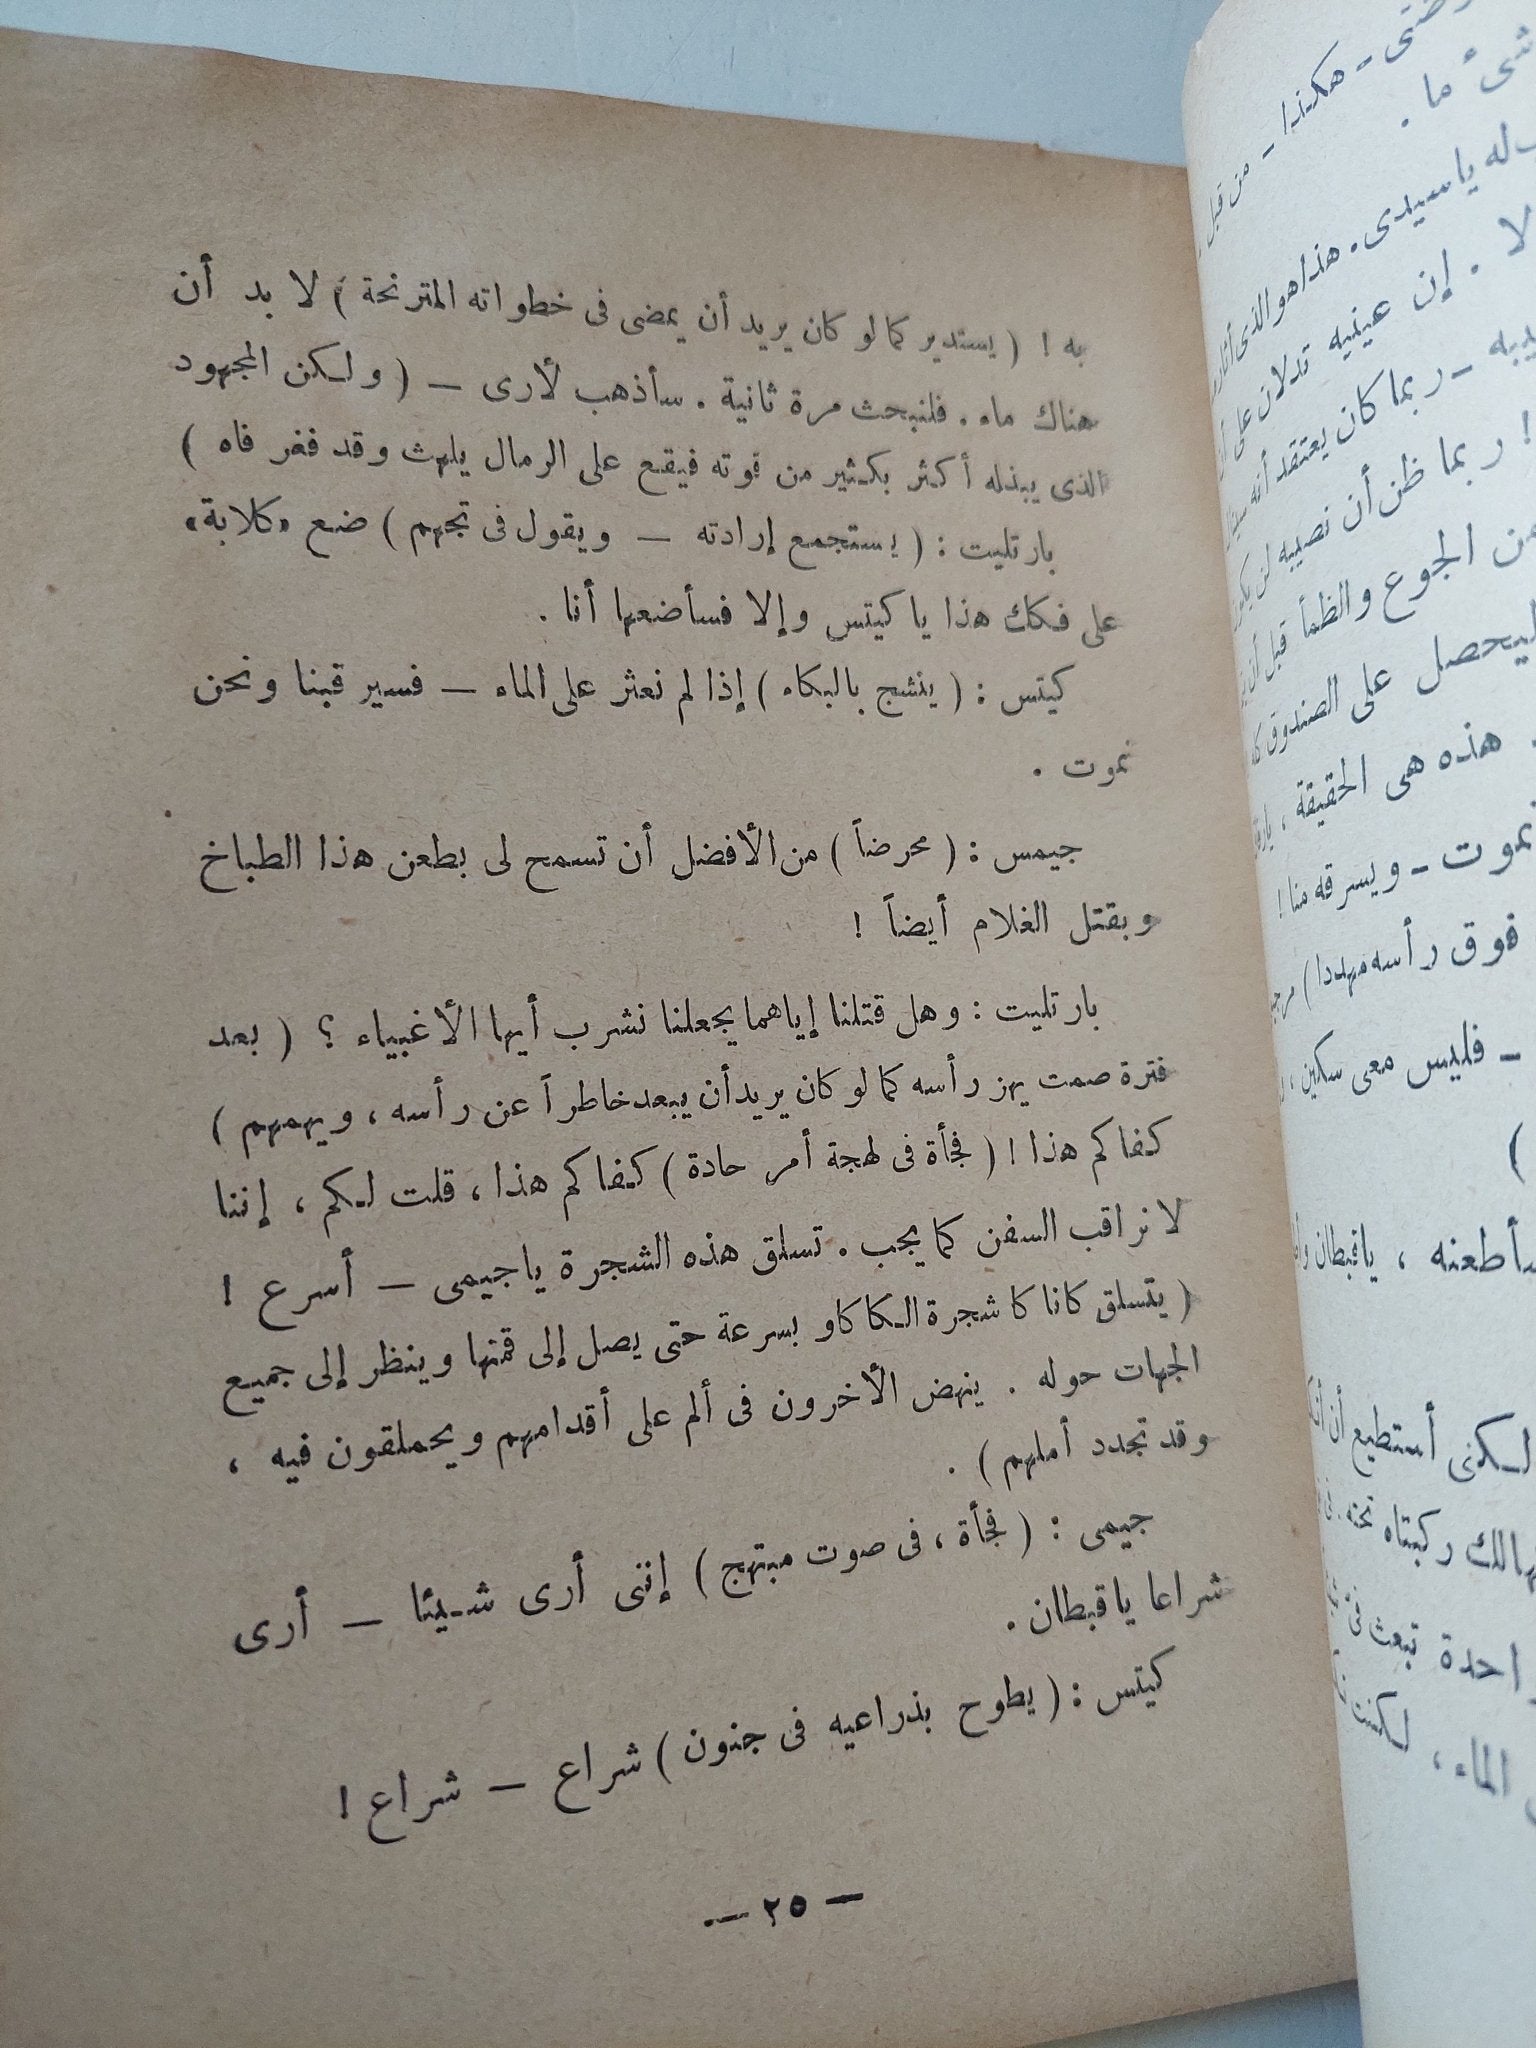 به ! ( يستدير كما لو كان يريد أن يمضى فى خطواته المترنحة ) لا بد أن
هناك ماء . فلنبحث مرة ثانية . سأذهب لأرى – ( ولكن المجهود
الذى يبذله أكثر بكثير من قوته فيقع على الرمال يلهث وقد فغر فاه )
بارتليت : ( يستجمع إرادته – ويقول فى تجهم ) ضع «كلابة»
على فكك هذا يا كيتس وإلا فسأضعها أنا .
كيتس : ( ينشج بالبكاء ) إذا لم نعثر على الماء – فسير قبنا ونحن
نموت .
جيمس : ( محرضاً ) من الأفضل أن تسمح لى بطعن هذا الطباخ
وبقتل الغلام أيضاً !
بارتليت : وهل قتلنا إياهما يجعلنا نشرب أيها الأغبياء ؟ ( بعد
فترة صمت يهز رأسه كما لو كان يريد أن يبعد خاطراً عن رأسه ، ويهمهم )
كفاكم هذا ! ( فجأة فى لهجة أمر حادة ) كفاكم هذا ، قلت لكم ، إننا
لا نراقب السفن كما يجب . تسلق هذه الشجرة ياجيمى – أسرع !
( يتسلق كاناكا شجرة الكاكاو بسرعة حتى يصل إلى قمتها وينظر إلى جميع
الجهات حوله . ينهض الأخرون فى ألم على أقدامهم ويحملقون فيه ،
وقد تجدد أملهم ) .
جيمى : ( فجأة ، فى صوت مبتهج ) إننى أرى شيئا – أرى
شراعا ياقبطان .
كيتس : ( يطوح بذراعيه فى جنون ) شراع – شراع !
– ٢٥ –
هكذا – من قبل
شىء ما .
له ياسيدى . هذا هو الذى أثار
لا . إن عينيه تدلان على
– ربما كان يعتقد أنه
! ربما ظن أن نصيبه لن يكون
من الجوع والظمأ قبل أن
ليحصل على الصندوق
هذه هى الحقيقة ،
نموت – ويسرقه منا !
فوق رأسه مهددا )
– فليس معى سكين ،
)
سأطعنه ، ياقبطان
لكنى أستطيع أن
ركبتاه تحته
تبعث فى
الماء ،